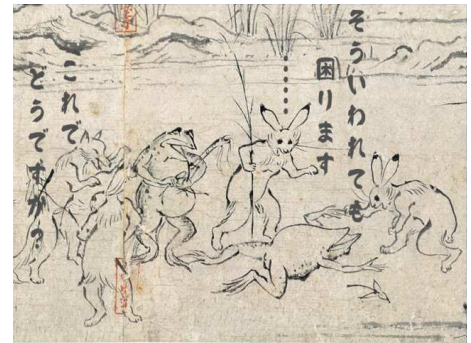 そういわれても
困ります
••••••
これで
どうですか？